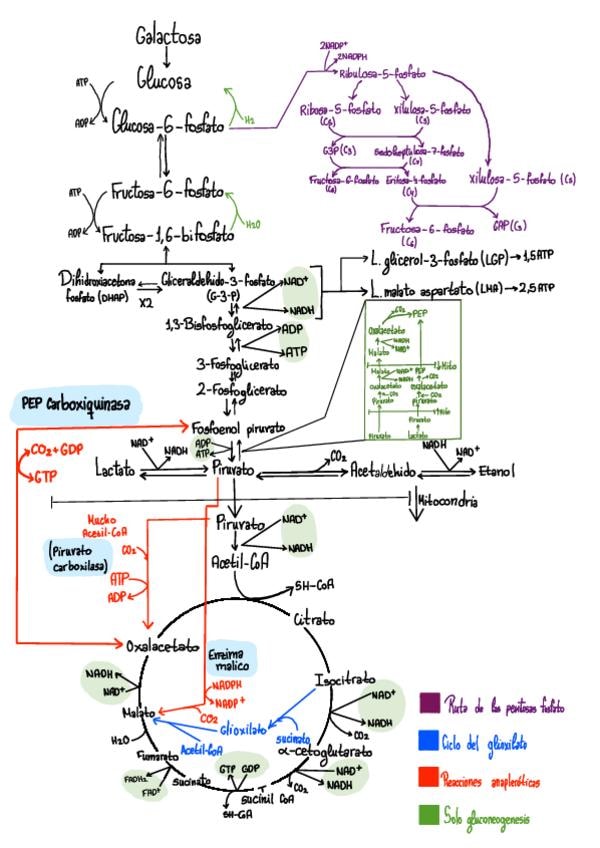 Galactosa
Glucosa
ATP
ADP
H₂
Glucosa-6-fosfato
2NADP⁺
2NADPH
Ribulosa-5-fosfato
Ribosa-5-fosfato
Xilulosa-5-fosfato
G3P(C₃)
Sedoheptulosa-7-fosfato
Fructosa-6-fosfato
Eritosa-4-fosfato
(C₄)
Xilulosa-5-fosfato (C₅)
Fructosa-6-fosfato
(C₆)
GAP(C₃)
ATP
ADP
Fructosa-6-fosfato
H₂O
Fructosa-1,6-bifosfato
Dihidroxiacetona
fosfato (DHAP)
x2
Gliceraldehido-3-fosfato
(G-3-P)
NAD⁺
NADH
L. glicerol-3-fosfato (LGP) → 1,5ATP
L. malato aspartato (LHA) → 2,5 ATP
1,3-Bisfosfoglicerato
ADP
ATP
3-Fosfoglicerato
2-Fosfoglicerato
CO₂
PEP
Oxalacetato
NADH
NAD⁺
Malato
Mito
Malato
NAD⁺
PEP
NADH
CO₂
Oxalacetato
Oxalacetato
CO₂
CO₂
Piruvato
Piruvato
Piruvato
Lactato
PEP Carboxiquinasa
Fosfoenol piruvato
CO₂+GDP
GTP
ADP
ATP
NAD⁺
NADH
Lactato
Piruvato
CO₂
Acetaldehido
NADH
NAD⁺
Etanol
Mitocondria
Mucho
Acetil-CoA
CO₂
(Piruvato
carboxilasa)
ATP
ADP
Piruvato
NAD⁺
NADH
Acetil-CoA
SH-CoA
Citrato
Oxalacetato
Enzima
malico
NADPH
NADP⁺
CO₂
Isocitrato
NAD⁺
NADH
CO₂
NADH
NAD⁺
Malato
Glioxilato
succinato
Acetil-CoA
α-cetoglutarato
H₂O
Fumarato
FADH₂
FAD⁺
succinato
GTP GDP
SH-CA
succinil CoA
CO₂
NAD⁺
NADH
Ruta de las pentosas fosfato
Ciclo del glioxilato
Reacciones anapleróticas
Solo gluconeogenesis